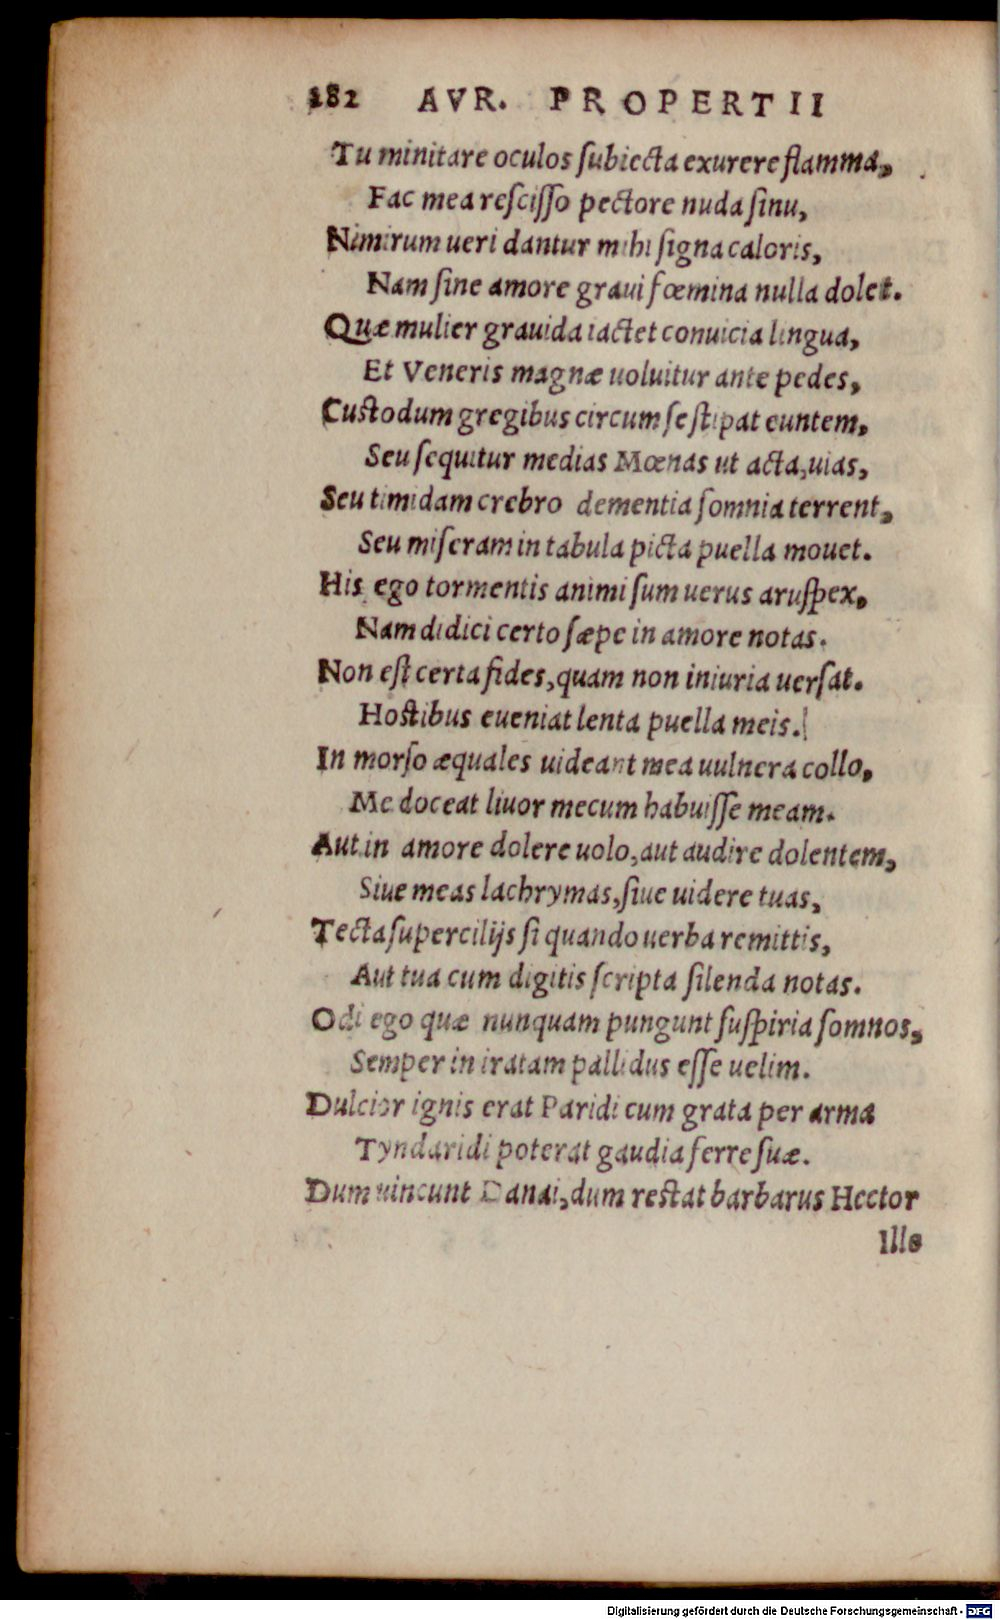 282 AVR. PROPERTII
Tu minitare oculos ſubiecta exurere flamma,
Fac mea reſciſſo pectore nuda ſinu,
Nimirum ueri dantur mihi ſigna caloris,
Nam ſine amore graui fœmina nulla dolet.
Quæ mulier grauida iactet conuicia lingua,
Et Veneris magnæ uoluitur ante pedes,
Cuſtodum gregibus circum ſe ſtipat euntem,
Seu ſequitur medias Mœnas ut acta, uias,
Seu timidam crebro dementia ſomnia terrent,
Seu miſeram in tabula picta puella mouet.
His ego tormentis animi ſum uerus aruſpex,
Nam didici certo ſæpe in amore notas.
Non eſt certa fides, quam non iniuria uerſat.
Hoſtibus eueniat lenta puella meis.
In morſo æquales uideant mea uulnera collo,
Me doceat liuor mecum habuiſſe meam.
Aut in amore dolere uolo, aut audire dolentem,
Siue meas lachrymas, ſiue uidere tuas,
Tecta ſupercilijs ſi quando uerba remittis,
Aut tua cum digitis ſcripta ſilenda notas.
Odi ego quæ nunquam pungunt ſuſpiria ſomnos,
Semper in iratam pallidus eſſe uelim.
Dulcior ignis erat Paridi cum grata per arma
Tyndaridi poterat gaudia ferre ſuæ.
Dum uincunt Danai, dum reſtat barbarus Hector
Ille
Digitalisierung gefördert durch die Deutsche Forschungsgemeinschaft - DFG